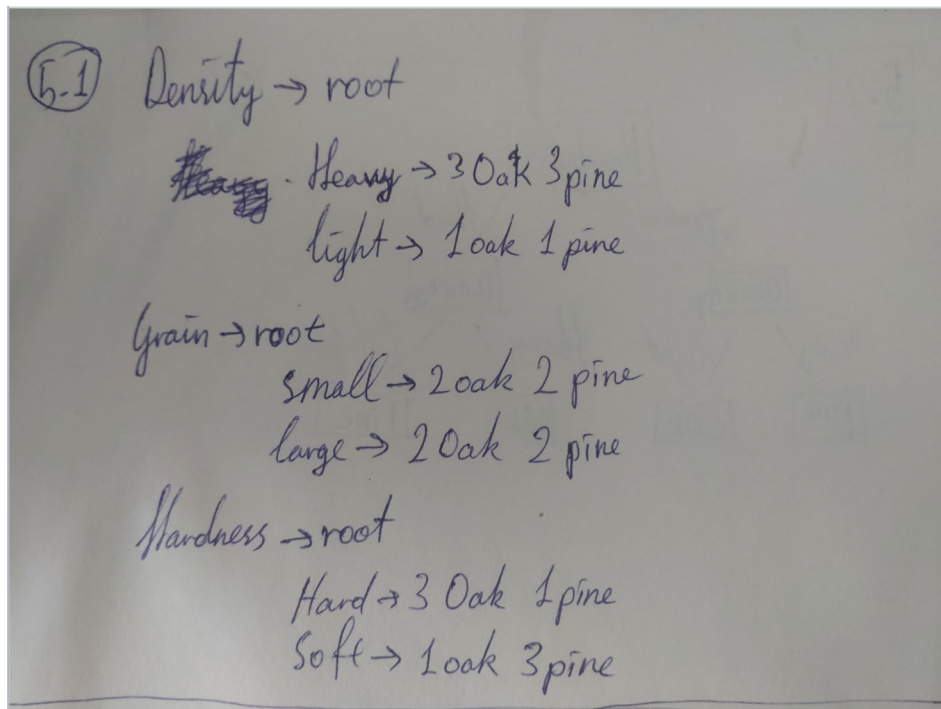 5.1 Density → root
Heavy → 3 Oak 3 pine
light → 1 oak 1 pine
Grain → root
small → 2 oak 2 pine
large → 2 Oak 2 pine
Hardness → root
Hard → 3 Oak 1 pine
Soft → 1 oak 3 pine